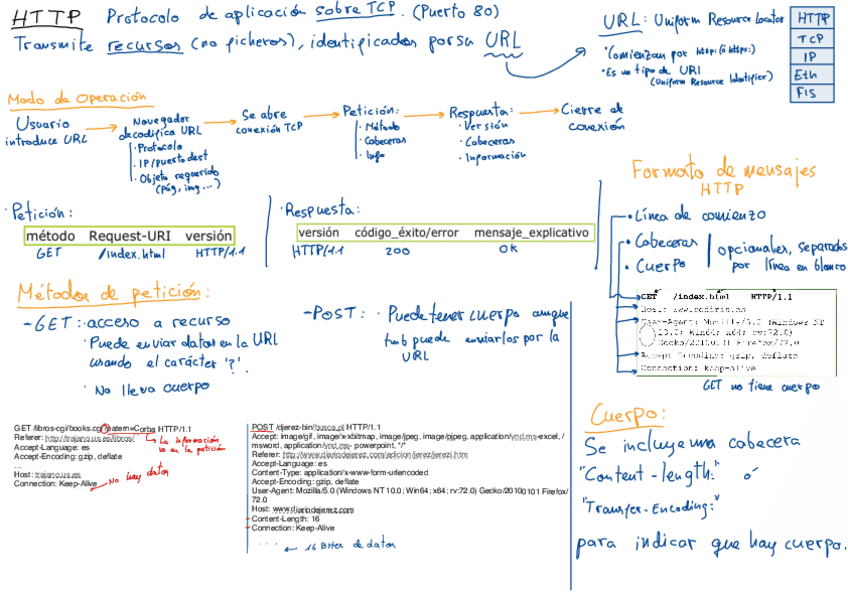 HTTP Protocolo de aplicación sobre TCP. (Puerto 80)
Transmite recursos (no ficheros), identificados por su URL
URL: Uniform Resource Locator
· Comienzan por http: (ó https:)
· Es un tipo de URI
(Uniform Resource Identifier)
HTTP
TCP
IP
Eth
FIS
Modo de Operación
Usuario
introduce URL
Navegador
decodifica URL
· Protocolo
· IP/puerto dest
· Objeto requerido
(pág, img...)
Se abre
conexión TCP
Petición:
· Método
· Cabeceras
· Info
Respuesta:
· Versión
· Cabeceras
· Información
Cierre de
conexión
· Petición:
método Request-URI versión
GET /index.html HTTP/1.1
· Respuesta:
versión código_éxito/error mensaje_explicativo
HTTP/1.1 200 OK
Formato de mensajes
HTTP
· Línea de comienzo
· Cabeceras
· Cuerpo
opcionales, separados
por línea en blanco
GET /index.html HTTP/1.1
Host: www.rediris.es
User-Agent: Mozilla/5.0 (Windows NT
10.0; Win64; x64; rv:72.0)
Gecko/20100101 Firefox/72.0
Accept-Encoding: gzip, deflate
Connection: keep-alive
GET no tiene cuerpo
Métodos de petición:
- GET: · acceso a recurso
· Puede enviar datos en la URL
usando el carácter '?'.
· No lleva cuerpo
- POST: · Puede tener cuerpo aunque
tmb puede enviarlos por la
URL
GET /libros-cgi/books.cgi?patern=Corba HTTP/1.1
Referer: http://trajano.us.es/libros/
Accept-Language: es
Accept-Encoding: gzip, deflate
Host: trajano.us.es
Connection: Keep-Alive
La información
va en la petición
No hay datos
POST /djerez-bin/busca.pl HTTP/1.1
Accept: image/gif, image/x-xbitmap, image/jpeg, image/pjpeg, application/vnd.ms-excel, /
msword, application/vnd.ms- powerpoint, */*
Referer: http://www.diariodejerez.com/edicion/jerez/jerezi.htm
Accept-Language: es
Content-Type: application/x-www-form-urlencoded
Accept-Encoding: gzip, deflate
User-Agent: Mozilla/5.0 (Windows NT 10.0; Win64; x64; rv:72.0) Gecko/20100101 Firefox/
72.0
Host: www.diariodejerez.com
Content-Length: 16
Connection: Keep-Alive
.... ← 16 Bytes de datos
Cuerpo:
Se incluye una cabecera
"Content-length:" ó
"Transfer-Encoding:"
para indicar que hay cuerpo.